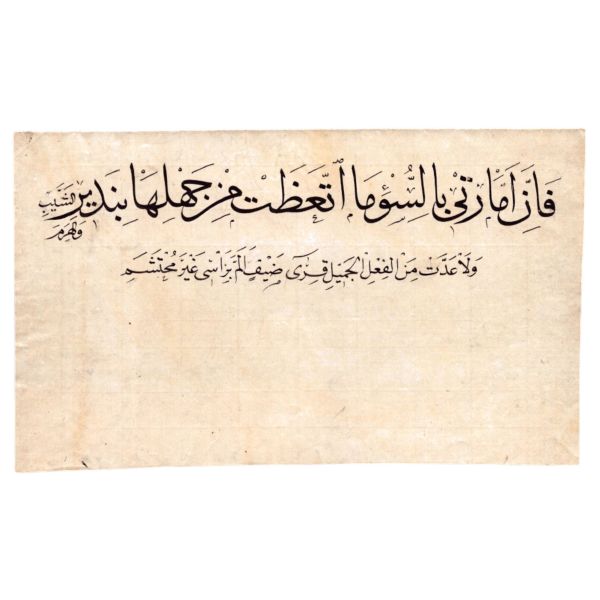 فَاِنَّ اَمَّارَتِي بِالسُّوءِ مَا اتَّعَظَتْ مِنْ جَهْلِهَا بِنَذِيرِ الشَّيْبِ
وَالْهَرَمِ
وَلَا اَعَدَّتْ مِنَ الْفِعْلِ الْجَمِيلِ قِرَى ضَيْفٍ اَلَمَّ بِرَأْسِي غَيْرَ مُحْتَشِمِ